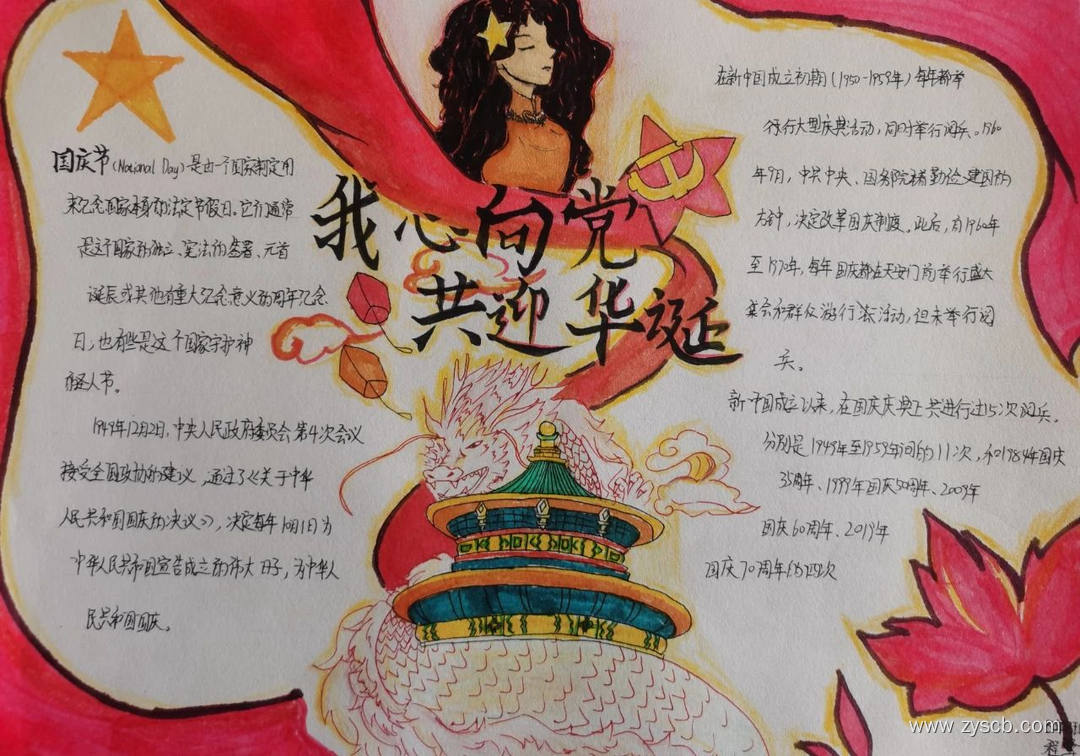 我心向党
共迎华诞
国庆节(National Day)是由一个国家制定用
来纪念国家本身的法定节假日。它们通常
是这个国家的独立、宪法的签署、元首
诞辰或其他有重大纪念意义的周年纪念
日,也有些是这个国家守护神
的圣人节。
1949年12月2日,中央人民政府委员会第4次会议
接受全国政协的建议,通过了《关于中华
人民共和国国庆的决议》,决定每年10月1日为
中华人民共和国宣告成立的伟大日子,为中华人
民共和国国庆。
在新中国成立初期(1950-1959年)每年都举
行大型庆典活动,同时举行阅兵。1960
年9月,中共中央、国务院本着勤俭建国的
方针,决定改革国庆制度。此后,自1960年
至1970年,每年国庆都在天安门前举行盛大
集会和群众游行活动,但未举行阅
兵。
新中国成立以来,在国庆庆典上共进行过15次阅兵。
分别是1949年至1959年间的11次,和1984年国庆
35周年、1999年国庆50周年、2009年
国庆60周年、2019年
国庆70周年的四次
www.zyscb.com